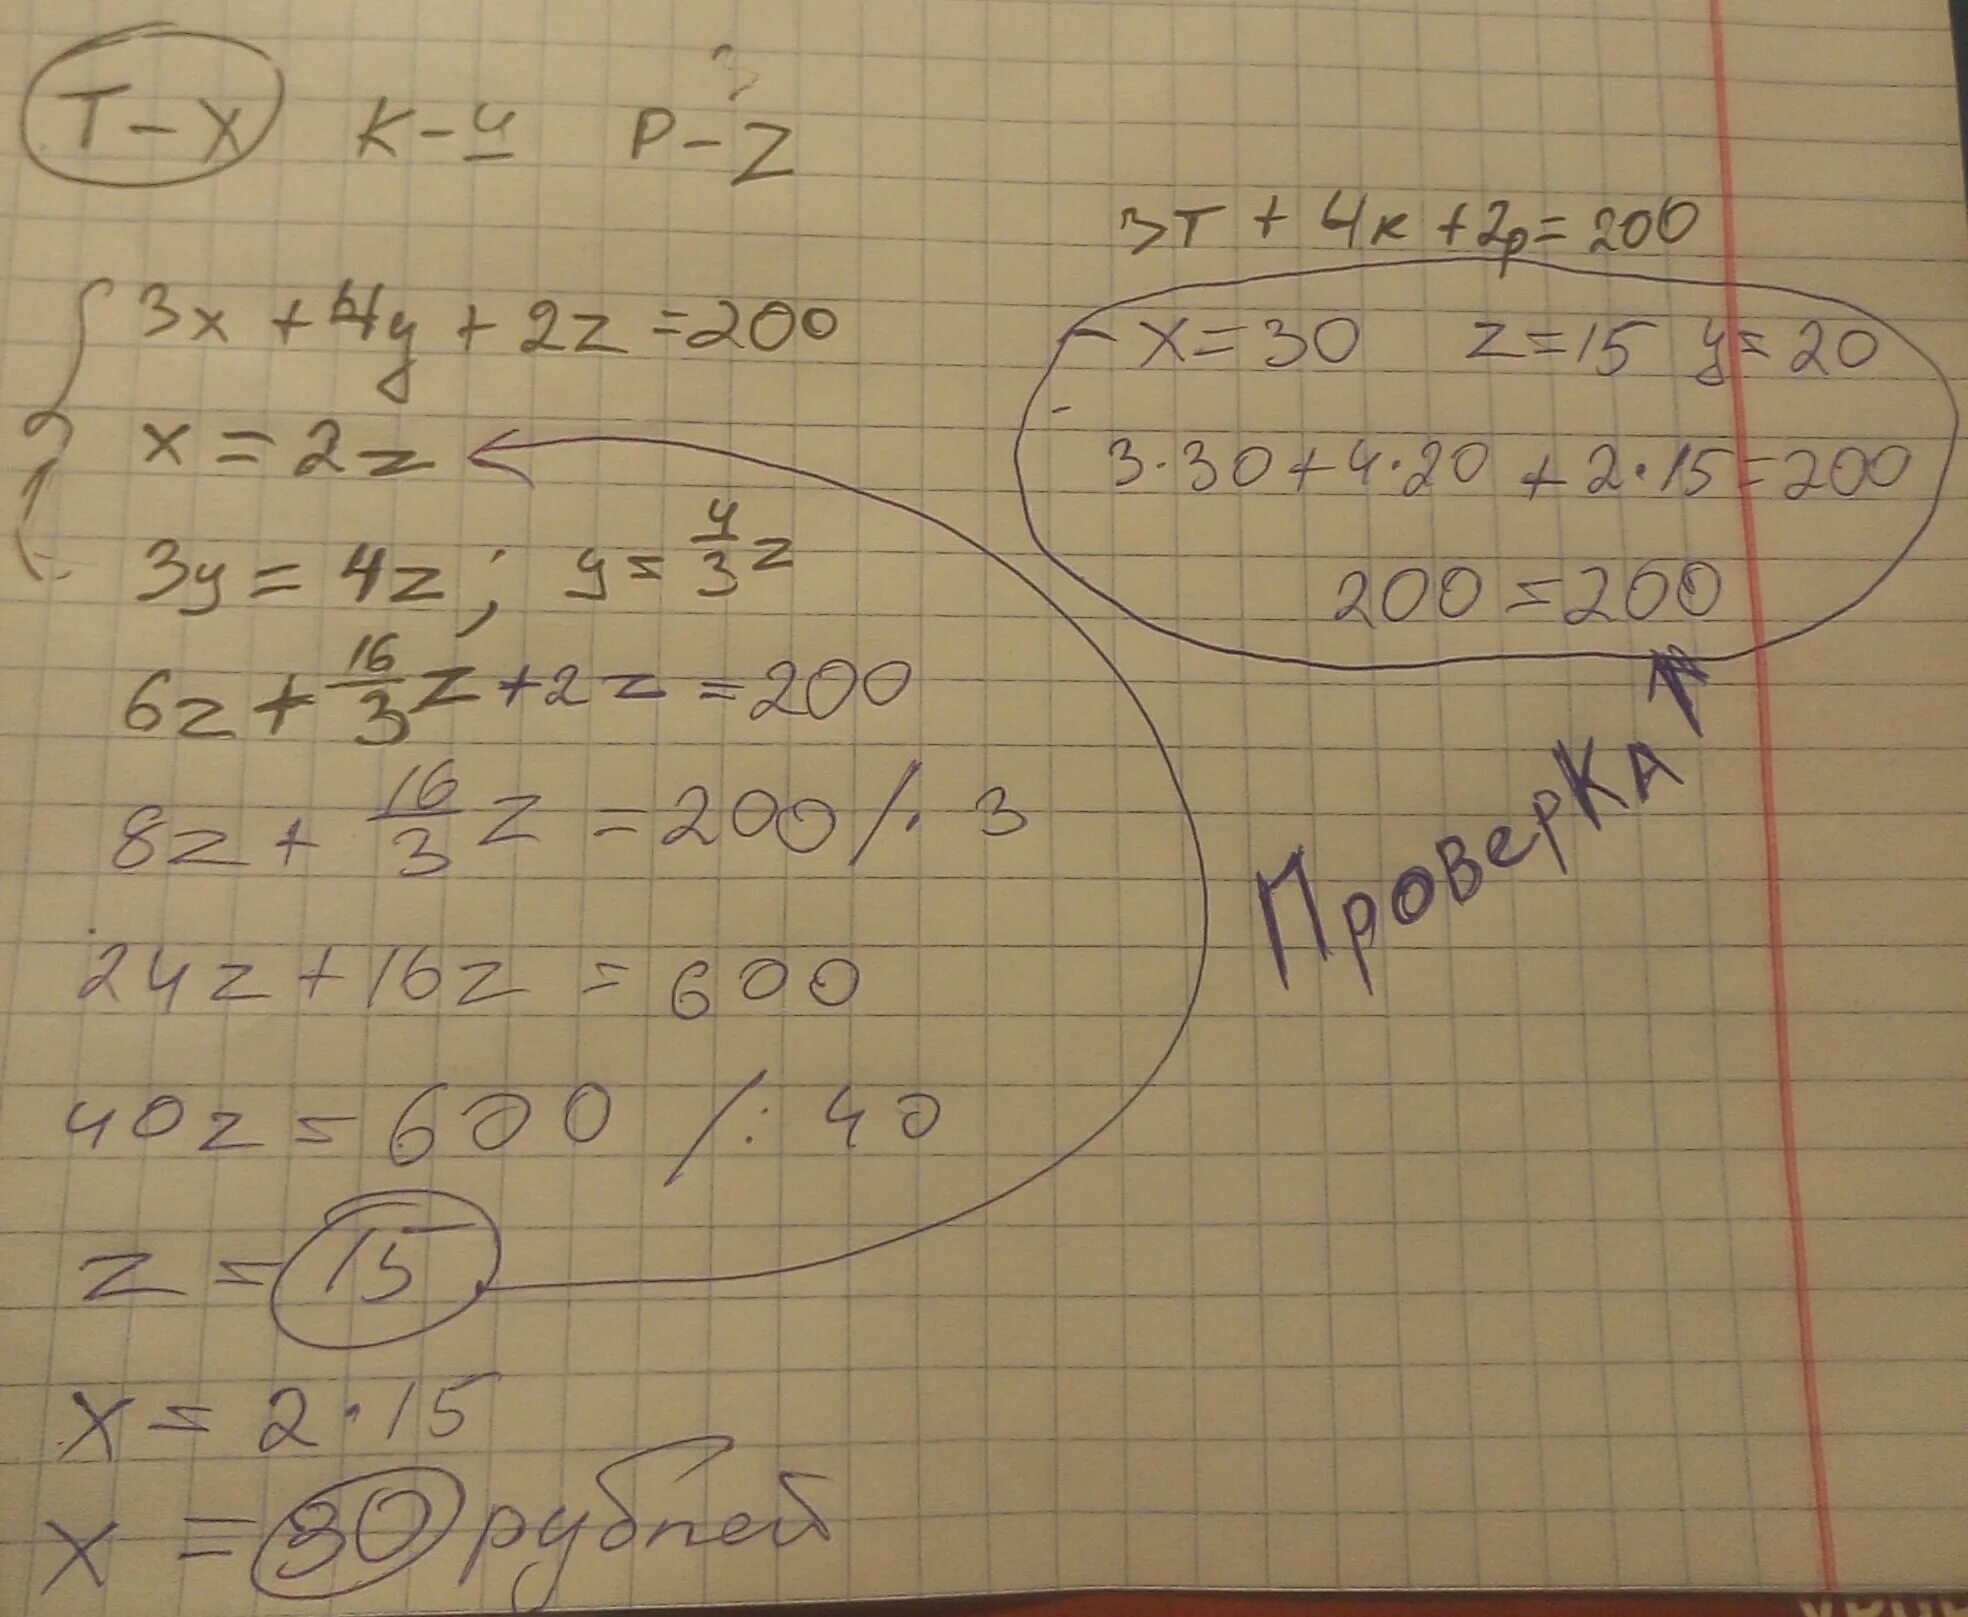 T – x K – y P – z
3x + 4y + 2z = 200
x = 2z
3y = 4z ; y = 4/3 z
6z + 16/3 z + 2z = 200
8z + 16/3 z = 200 /· 3
24z + 16z = 600
40z = 600 /: 40
z = 15
x = 2·15
x = 30 рублей
3т + 4к + 2р = 200
x = 30 z = 15 y = 20
3·30 + 4·20 + 2·15 = 200
200 = 200
Проверка